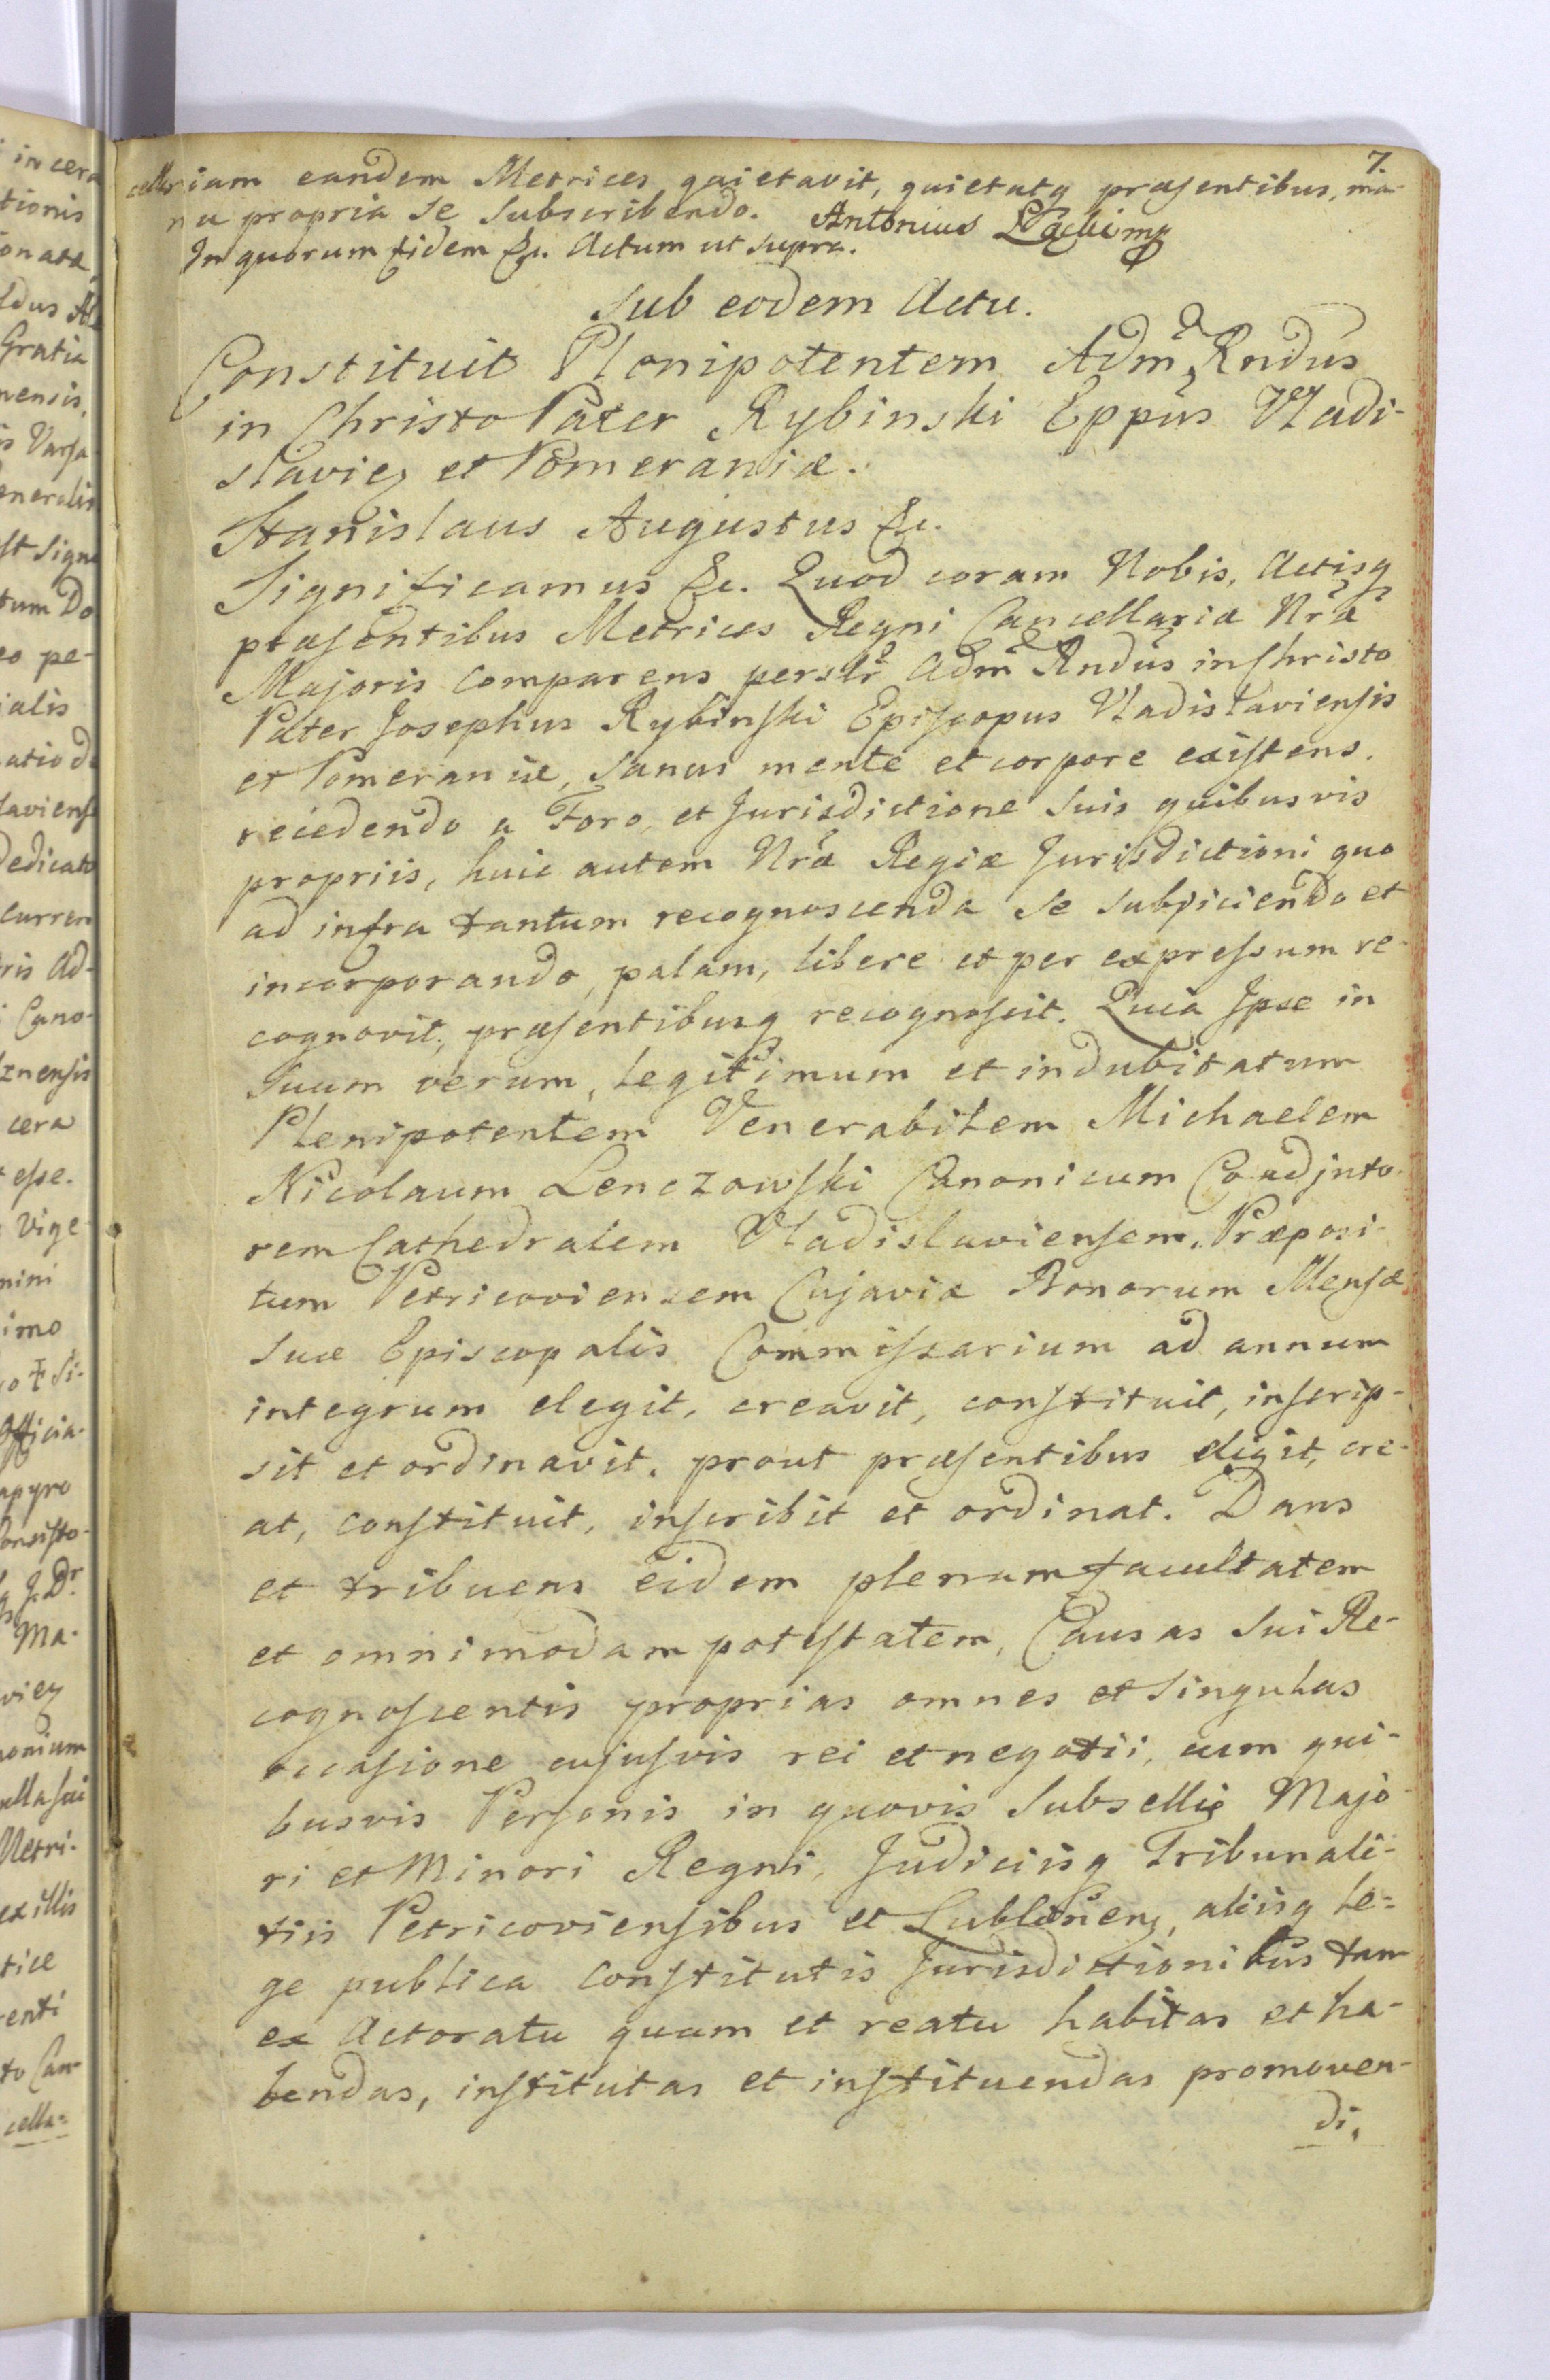 7.
cellariam eandem Metrices quietavit, quietatq præsentibus, ma-
nu propria se subscribendo. Antonius Łącki mp
In quorum fidem &c. Actum ut supra.
Sub eodem Actu.
Constituit Plenipotentem Admd Rndus
in Christo Pater Rybinski Eppus Vladi-
slavien et Pomeraniæ.
Stanislaus Augustus &c.
Significamus &c. Quod coram Nobis, Actisq
præsentibus Metrices Regni Cancellariæ Nræ
Majoris comparens perslr Admd Rndus in Christo
Pater Josephus Rybinski Episcopus Vladislaviensis
et Pomeraniæ, sanus mente et corpore existens.
recedendo a Foro, et Jurisdictione suis quibusvis
propriis, huic autem Nræ Regiæ Jurisdictioni quo
ad infra tantum recognoscenda se subjiciendo et
incorporando, palam, libere et per expressum re-
cognovit, præsentibusq recognoscit. Quia Ipse in
suum verum, legitimum et indubitatum
Plenipotentem Venerabilem Michaelem
Nicolaum Lenczowski Canonicum Coadjuto-
rem Cathedralem Vladislaviensem, Præposi-
tum Petricoviensem Cujaviæ Bonorum Mensæ
suæ Episcopalis Commissarium ad annum
integrum elegit, creavit, constituit, inscrip-
sit et ordinavit, prout præsentibus eligit, cre-
at, constituit, inscribit et ordinat. Dans
et tribuens eidem plenam facultatem
et omnimodam potestatem, Causas sui Re-
cognoscentis proprias omnes et singulas
occasione cujusvis rei et negotii, cum qui-
busvis Personis in quovis Subsellio Majo-
ri et Minori Regni, Judiciisq Tribunali-
tiis Petricoviensibus et Lublinen, aliisq le-
ge publica constitutis Jurisdictionibus tam
ex Actoratu quam et reatu habitas et ha-
bendas, institutas et instituendas promoven-
di,